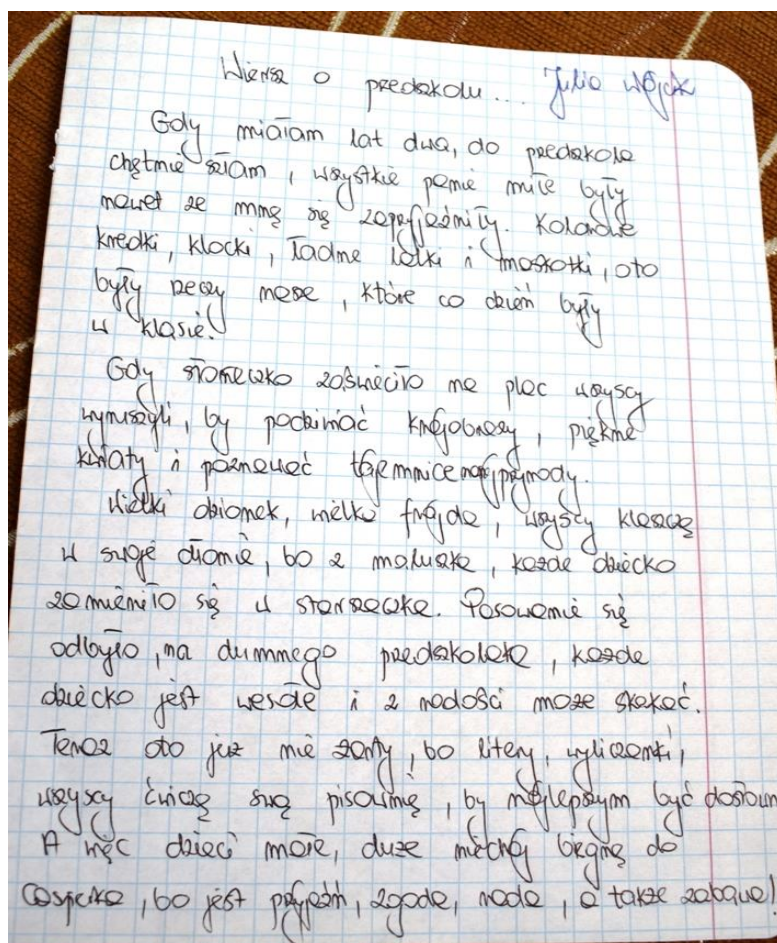 Wiersz o przedszkolu... Julia Wójcik
Gdy miałam lat dwa, do przedszkola
chętnie szłam, wszystkie panie miłe były
nawet ze mną się zaprzyjaźniły. Kolorowe
kredki, klocki, ładne lalki i maskotki, oto
były rzeczy nasze, które co dzień były
w klasie.
Gdy słoneczko zaświeciło na plac wszyscy
wyruszyli, by podziwiać krajobrazy, piękne
kwiaty i poznawać tajemnice naszej przyrody.
Wielki dzionek, wielka frajda, wszyscy klaszczą
w swoje dłonie, bo z maluszka, każde dziecko
zamieniło się w starszaczka. Pasowanie się
odbyło, na dumnego przedszkolaka, każde
dziecko jest wesołe i z radości może skakać.
Teraz oto już nie żarty, bo litery, wyliczanki,
wszyscy ćwiczą swą pisownię, by najlepszym być
A więc dzieci małe, duże niechaj biegną do
bo jest przyjaźń, zgoda, rada, a także zabawa!